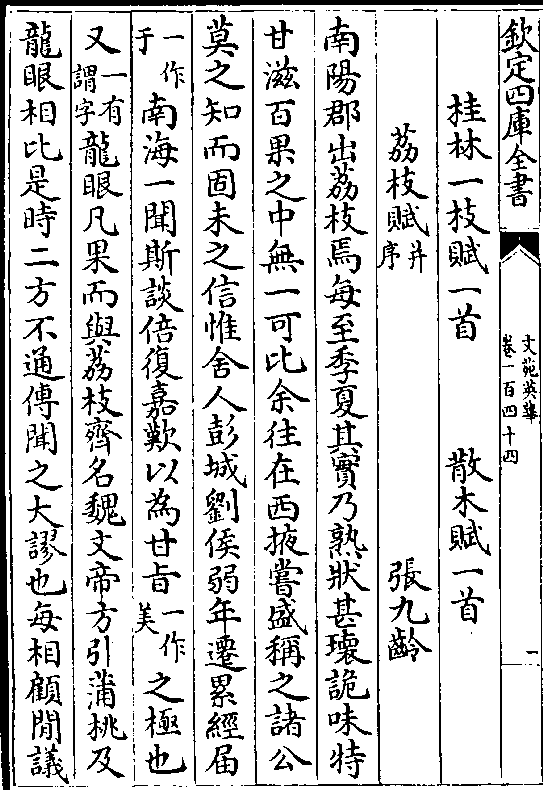 欽定四庫全書
文苑英華
卷一百四十四
一
桂林一枝賦一首　散木賦一首
荔枝賦并序　張九齡
南陽郡出荔枝焉每至季夏其實乃熟狀甚瓌詭味特
甘滋百果之中無一可比余往在西掖嘗盛稱之諸公
莫之知而固未之信惟舍人彭城劉侯弱年遷累經届
一作于南海一聞斯談倍復嘉歎以為甘旨一作美之極也
又一有謂字龍眼凡果而與荔枝齊名魏文帝方引蒲桃及
龍眼相比是時二方不通傳聞之大謬也每相顧閒議